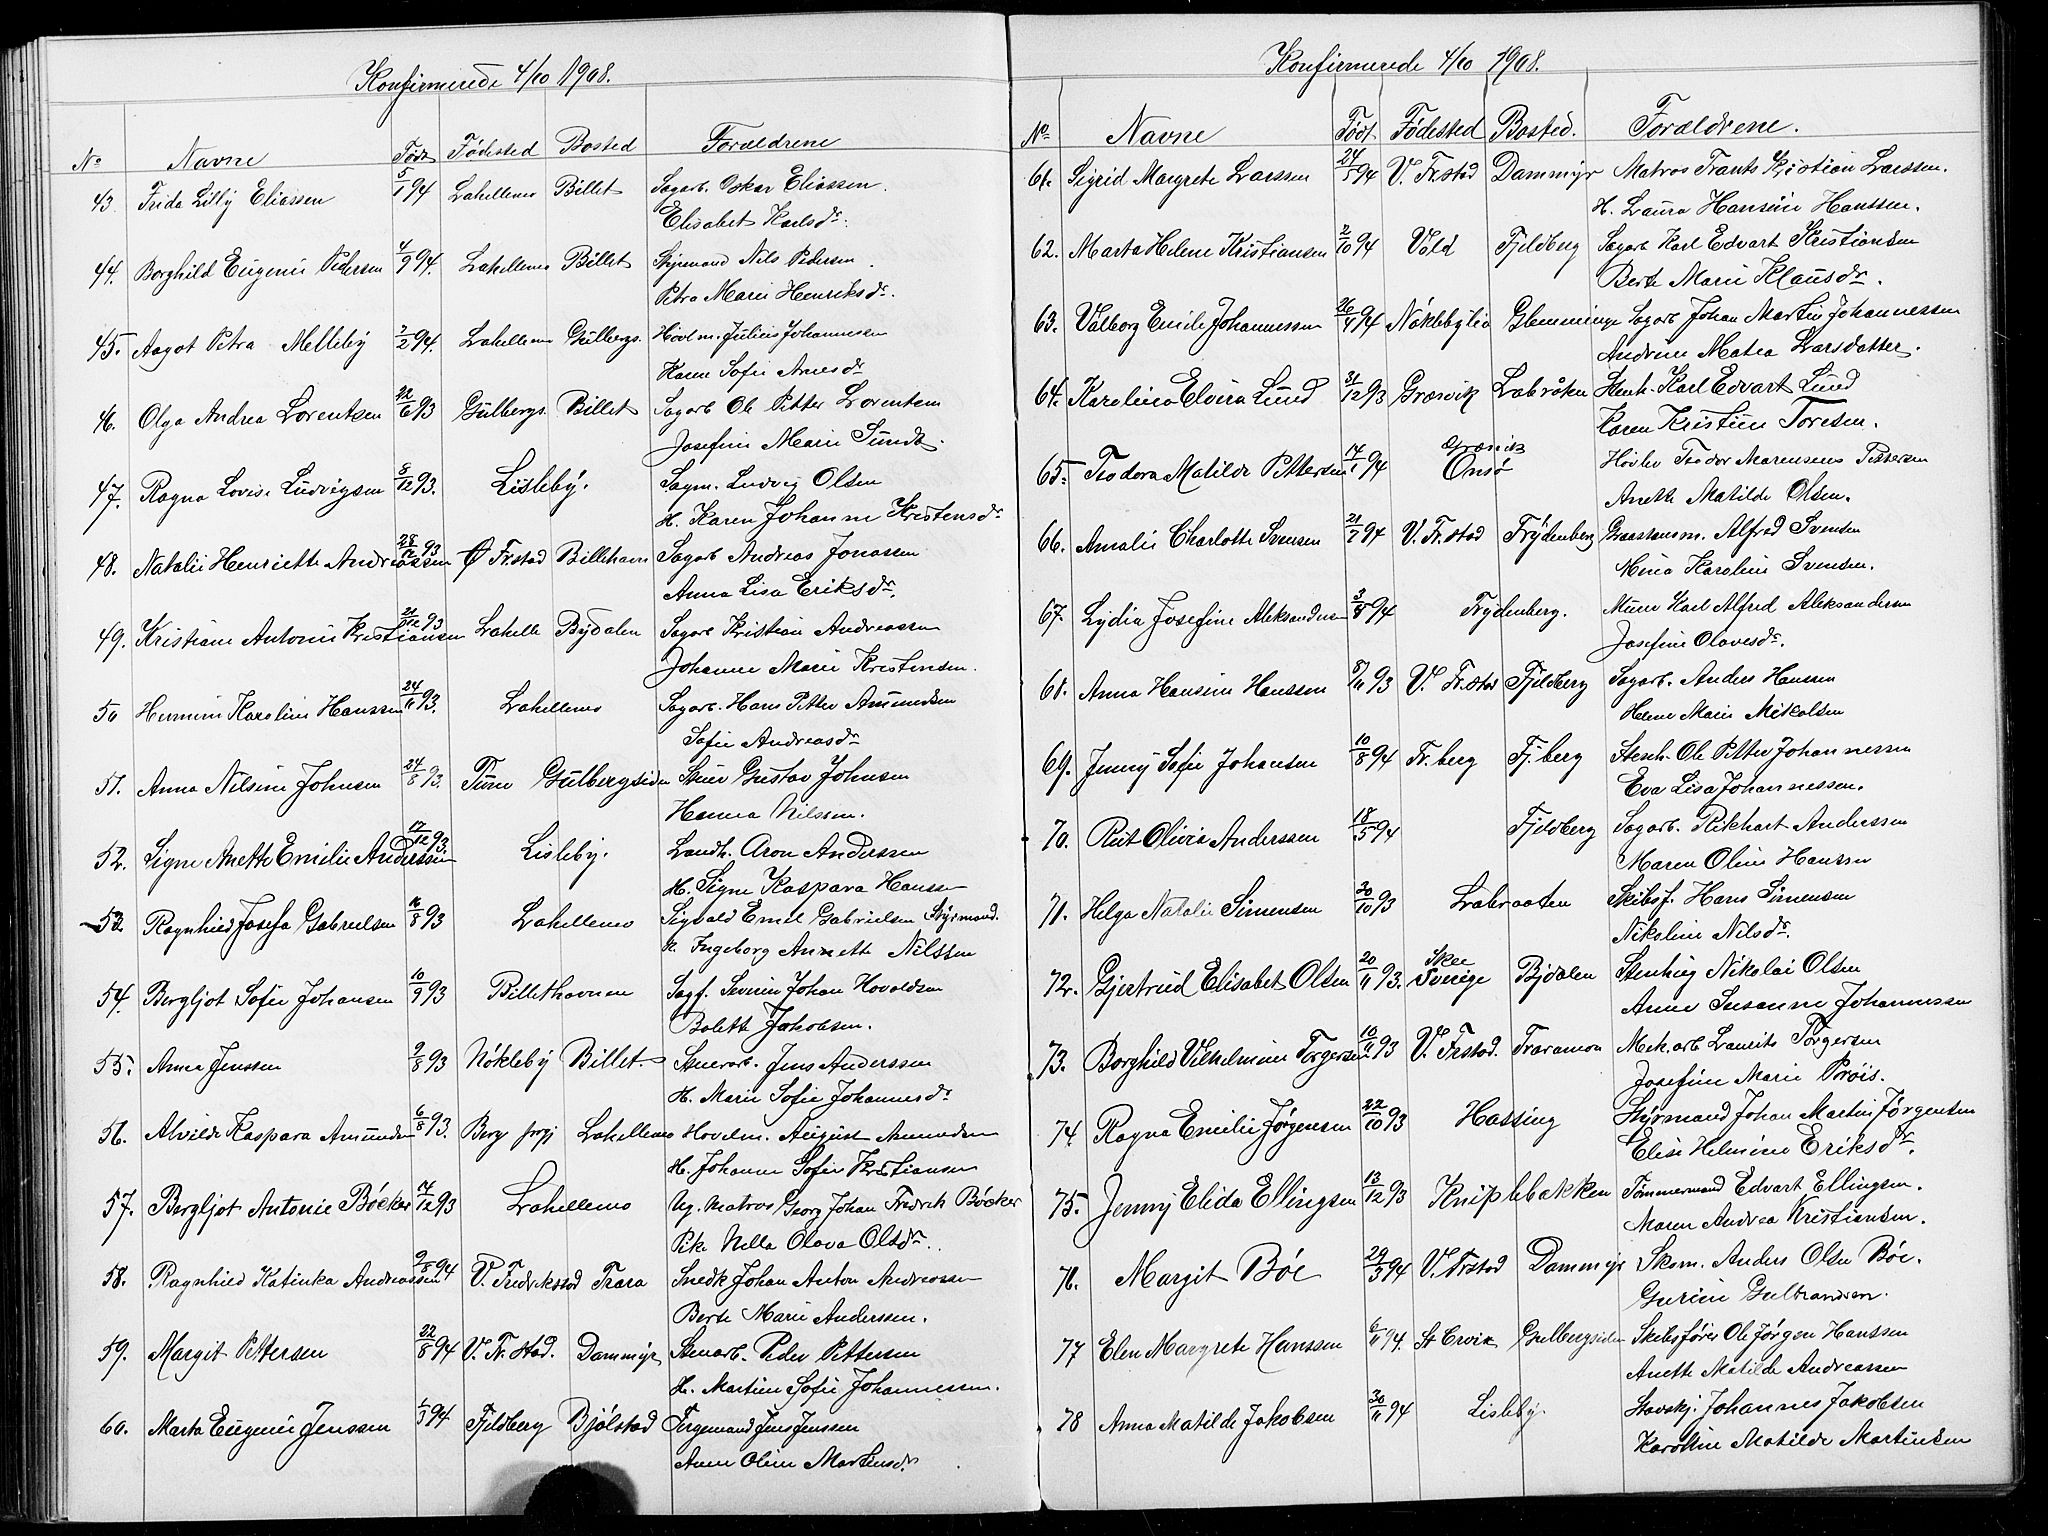 Konfirmerede 4/10 1908.
No Navne Født Fødested Bosted Forældrene
43. Frida Lilly Eliassen 5/1 94 Lahellemo Billet Sagarb. Oskar Eliassen.
Elisabet Karlsdr.
44. Borghild Eugenie Pedersen 4/9 94. Lahellemo Billet Styrmand Nils Pedersen.
Petra Marie Henriksdr.
45. Aagot Petra Melleby 7/2 94. Lahellemo Gulbergs. Høvlm. Julius Johannessen
Karen Sofie Arnesdr
46. Olga Andrea Lorentsen 22/6 93 Gulbergs. Billet Sagarb Ole Petter Lorentsen
Josefine Marie Sundt.
47. Ragna Lovise Ludvigsen 8/12 93. Lisleby. Sagm. Ludvig Olsen
H. Karen Johanne Kristensdr
48. Natalie Henriette Andreassen 28/12 93 Ø Fr.stad Billethavn Sagarb Andreas Jonassen
Anna Lisa Eriksdr.
49. Kristiane Antonie Kristiansen 21/12 93 Lahelle Bydalen Sagarb Kristian Andreassen
Johanne Marie Kristensen.
50 Hermine Karoline Hanssen 24/11 93. Lahellemo Sagarb. Hans Petter Amundsen
Sofie Andreasdr
51. Anna Nilsine Johnsen 24/8 93. Tune Gulbergsiden Stuer Gustav Johnsen
Hanna Nilssen.
52. Signe Anette Emilie Anderssen 17/12 93. Lisleby. Landh. Aron Anderssen
H. Signe Kaspara Hanssen
53. Ragnhild Josefa Gabrielsen 16/8 93 Lahellemo Sigvald Emil Gabrielsen Styrmand.
H. Ingeborg Annette Nilssen
54. Bergljot Sofie Johansen 10/9 93 Billethavnen Sagf. Severin Johan Hovaldsen
Bolette Jakobsen.
55. Anna Jenssen 9/8 93 Nökleby Billet. Stuerarb. Jens Anderssen
H. Marie Sofie Johannesdr
56. Alvilde Kaspara Amundsen 6/8 93. Berg prgj Lahellemo Hovelm. August Amundsen
H. Johanne Sofie Kristiansen
57. Bergljot Antonie Böcker 17/12 93 Lahellemo Ug. matros Georg Johan Fredrik Böcker
Pike Nella Olava Olsdr.
58. Ragnhild Katinka Andreassen 9/8 94 V. Fredrikstad Trara Snedk Johan Anton Andreassen
Berte Marie Anderssen.
59. Margit Pettersen 22/8 94 V. Fr.stad. Dammyr Stenarb. Peder Pettersen
H. Martine Sofie Johannessen.
60. Marta Eugenie Jenssen 1/3 94 Fjeldberg Bjölstad Færgemand Jens Jenssen
Anne Oline Martinsdr.
Konfirmerede 4/10 1908.
No Navne Født. Fødested Bosted. Forældrene.
61. Sigrid Margrete Larssen 24/5 94 V. Fr.stad Dammyr Matros Frants Kristian Larssen.
H. Laura Hansine Hanssen.
62. Marta Helene Kristiansen 2/10 94 Vold Fjeldberg Sagarb Karl Edvart Kristiansen
Berte Marie Klausdr.
63. Valborg Emilie Johannessen 26/4 94 Nöklebylia Glemminge Sagarb Johan Martin Johannessen
Andrine Matea Larsdatter.
64. Karolina Elvira Lund 31/12 93 Græsvik Labråten Stenh. Karl Edvart Lund
Karen Kristine Toresen.
65. Teodora Matilde Pettersen 14/1 94 Græsvik Onsö Høvler Teodor Marensens Pettersen
Anette Matilde Olsen.
66. Amalie Charlotte Svensen 21/7 94 V. Fr.stad Frydenberg Graastensm. Alfred Svensen
Mina Karoline Svensen.
67. Lydia Josefine Aleksandersen 3/8 94 Frydenberg. Murer Karl Alfred Aleksandersen
Josefine Olavesdr.
68. Anna Hansine Hanssen 8/11 93 V. Fr.stad Fjeldberg Sagarb. Anders Hanssen
Helene Marie Mikalsen
69. Jenny Sofie Johansen 10/8 94 Fr. berg Fj. berg Stesh. Ole Petter Johannessen
Eva Lisa Johannessen.
70. Rut Olivia Anderssen 18/5 94 Fjeldberg Sagarb. Rikhart Anderssen
Maren Oline Hanssen
71. Helga Natalie Simensen 30/10 93 Labraaten Skibsf. Hans Simensen
Nikoline Nilsdr.
72. Gjertrud Elisabet Olsen 20/11 93. Skee Sverige Bydalen Stenhug Nikolai Olsen
Anne Susanne Johannessen
73. Borghild Vilhelmine Torgersen 16/11 93 V. Frstad. Traramoen Mek. arb Laurits Torgersen
Josefine Marie Pröis.
74. Ragna Emilie Jørgensen 22/10 93 Hassing Styrmand Johan Martin Jørgensen
Elise Helmine Eriksdr.
75. Jenny Elida Ellingsen 13/12 93 Kniplebakken Tömmermand Edvart Ellingsen.
Maren Andrea Kristiansen.
76. Margit Böe 29/3 94 V. Frstad Dammyr Skom. Anders Olsen Böe.
Gurine Gulbrandsen.
77 Elen Margrete Hanssen 6/11 94. St Croix Gulbergsiden Skibsfører Ole Jørgen Hanssen
Anette Matilde Andreassen
78 Anna Matilde Jakobsen 30/11 94 Lisleby. Stavskj. Johannes Jakobsen
Karoline Matilde Martinsen